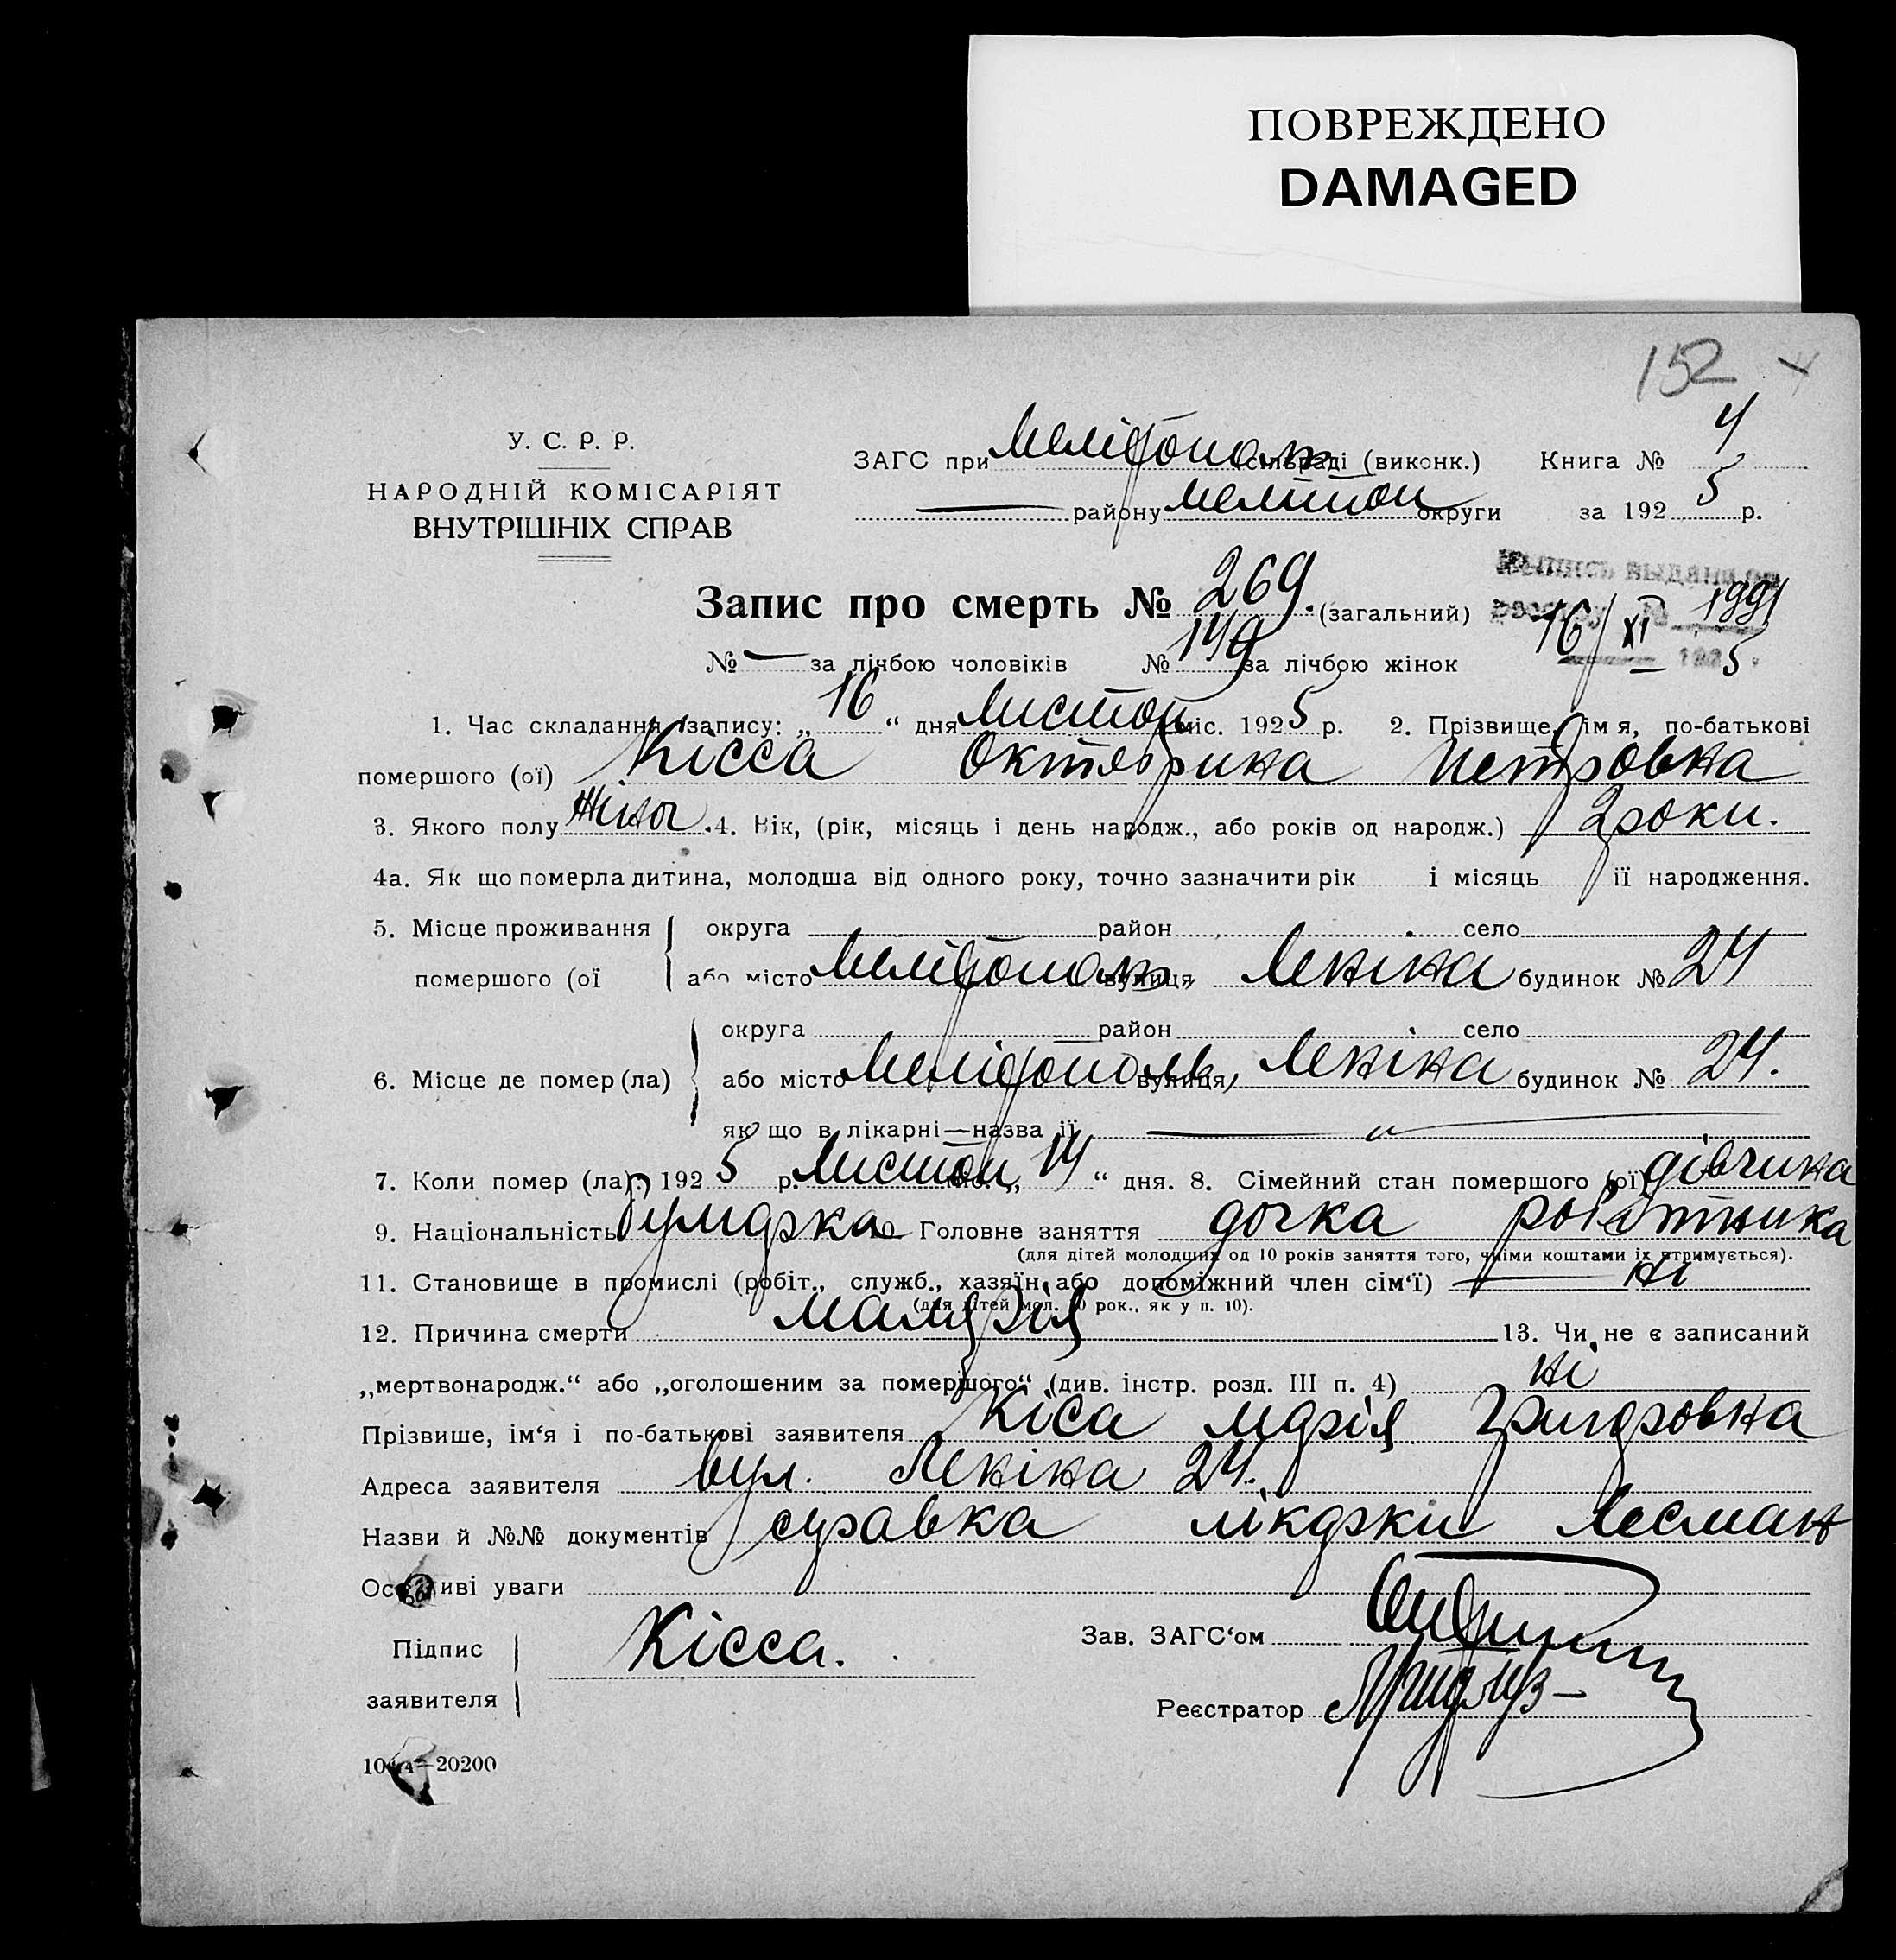 ПОВРЕЖДЕНО
DAMAGED
152
У. С. Р. Р.
НАРОДНІЙ КОМІСАРІЯТ
ВНУТРІШНІХ СПРАВ
ЗАГС при Мелітополь сільраді (виконк.) Книга № 4
— району Мелітоп округи за 1925 р.
Запис про смерть № 269. (загальний)
выдана
16/XI 1991
1925
№ — за лічбою чоловіків № 149 за лічбою жінок
1. Час складання запису: „16“ дня Листоп міс. 1925 р. 2. Прізвище, ім я, по-батькові
помершого (ої) Кісса Октябрина Петровна
3. Якого полу Жіноч. 4. Вік, (рік, місяць і день народж., або років од народж.) 2 роки.
4а. Як що померла дитина, молодша від одного року, точно зазначити рік і місяць ії народження.
5. Місце проживання округа район село
помершого (ої або місто Мелітополь вулиця Леніна будинок № 24
округа район село
6. Місце де помер (ла) або місто Мелітополь вулиця, Леніна будинок № 24.
як що в лікарні—назва ії — „
7. Коли помер (ла) 1925 р. Листоп міс. „14“ дня. 8. Сімейний стан помершого (ої) дівчина
9. Національність 10. Головне заняття дочка робітника
(для дітей молодших од 10 років заняття того, чиїми коштами їх втримується).
11. Становище в промислі (робіт., служб., хазяїн або допоміжний член сім‘ї) — ні
(для дітей мол. 10 рок., як у п. 10).
12. Причина смерти малярія 13. Чи не є записаний
„мертвонародж.“ або „оголошеним за помершого“ (див. інстр. розд. III п. 4) ні
Прізвише, ім‘я і по-батькові заявителя Кіса Марія Григоровна
Адреса заявителя вул. Леніна 24.
Назви й №№ документів справка лікарки Лесман
Особливі уваги
Підпис
заявителя
Кісса.
Зав. ЗАГС‘ом
Реєстратор
20200